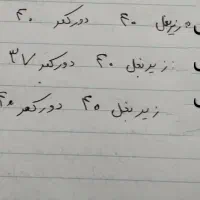 زیربغل ۴۰ دورکمر ۴۰
زیربغل ۴۰ دورکمر ۳۷
زیربغل ۴۵ دورکمر